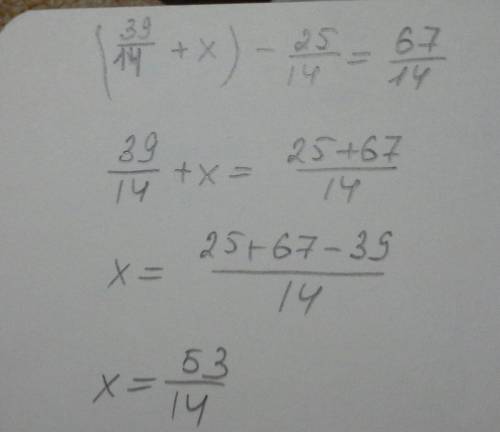 (39/14 + x) - 25/14 = 67/14
39/14 + x = 25+67/14
x = 25+67-39/14
x = 53/14